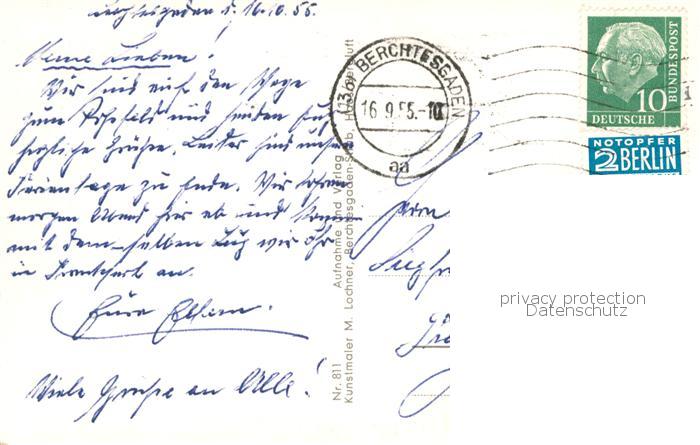 Berchtesgaden d. 16.10.55.
Meine Lieben!
Wir sind auf dem Wege
zum und senden Euch
herzliche Grüße. Leider sind unsere
Ferientage zu Ende. Wir fahren
morgen Abend hier ab und kommen
mit dem-selben Zug wie Ihr
in Frankfurt an.
Eure Eltern.
Viele Grüße an Alle!
Nr. 811 Aufnahme und Verlag
Kunstmaler M. Lochner, Berchtesgaden-Stub,
(13b) BERCHTESGADEN
16.9.55.-10
aa
DEUTSCHE BUNDESPOST
10
NOTOPFER
2 BERLIN
privacy protection
Datenschutz